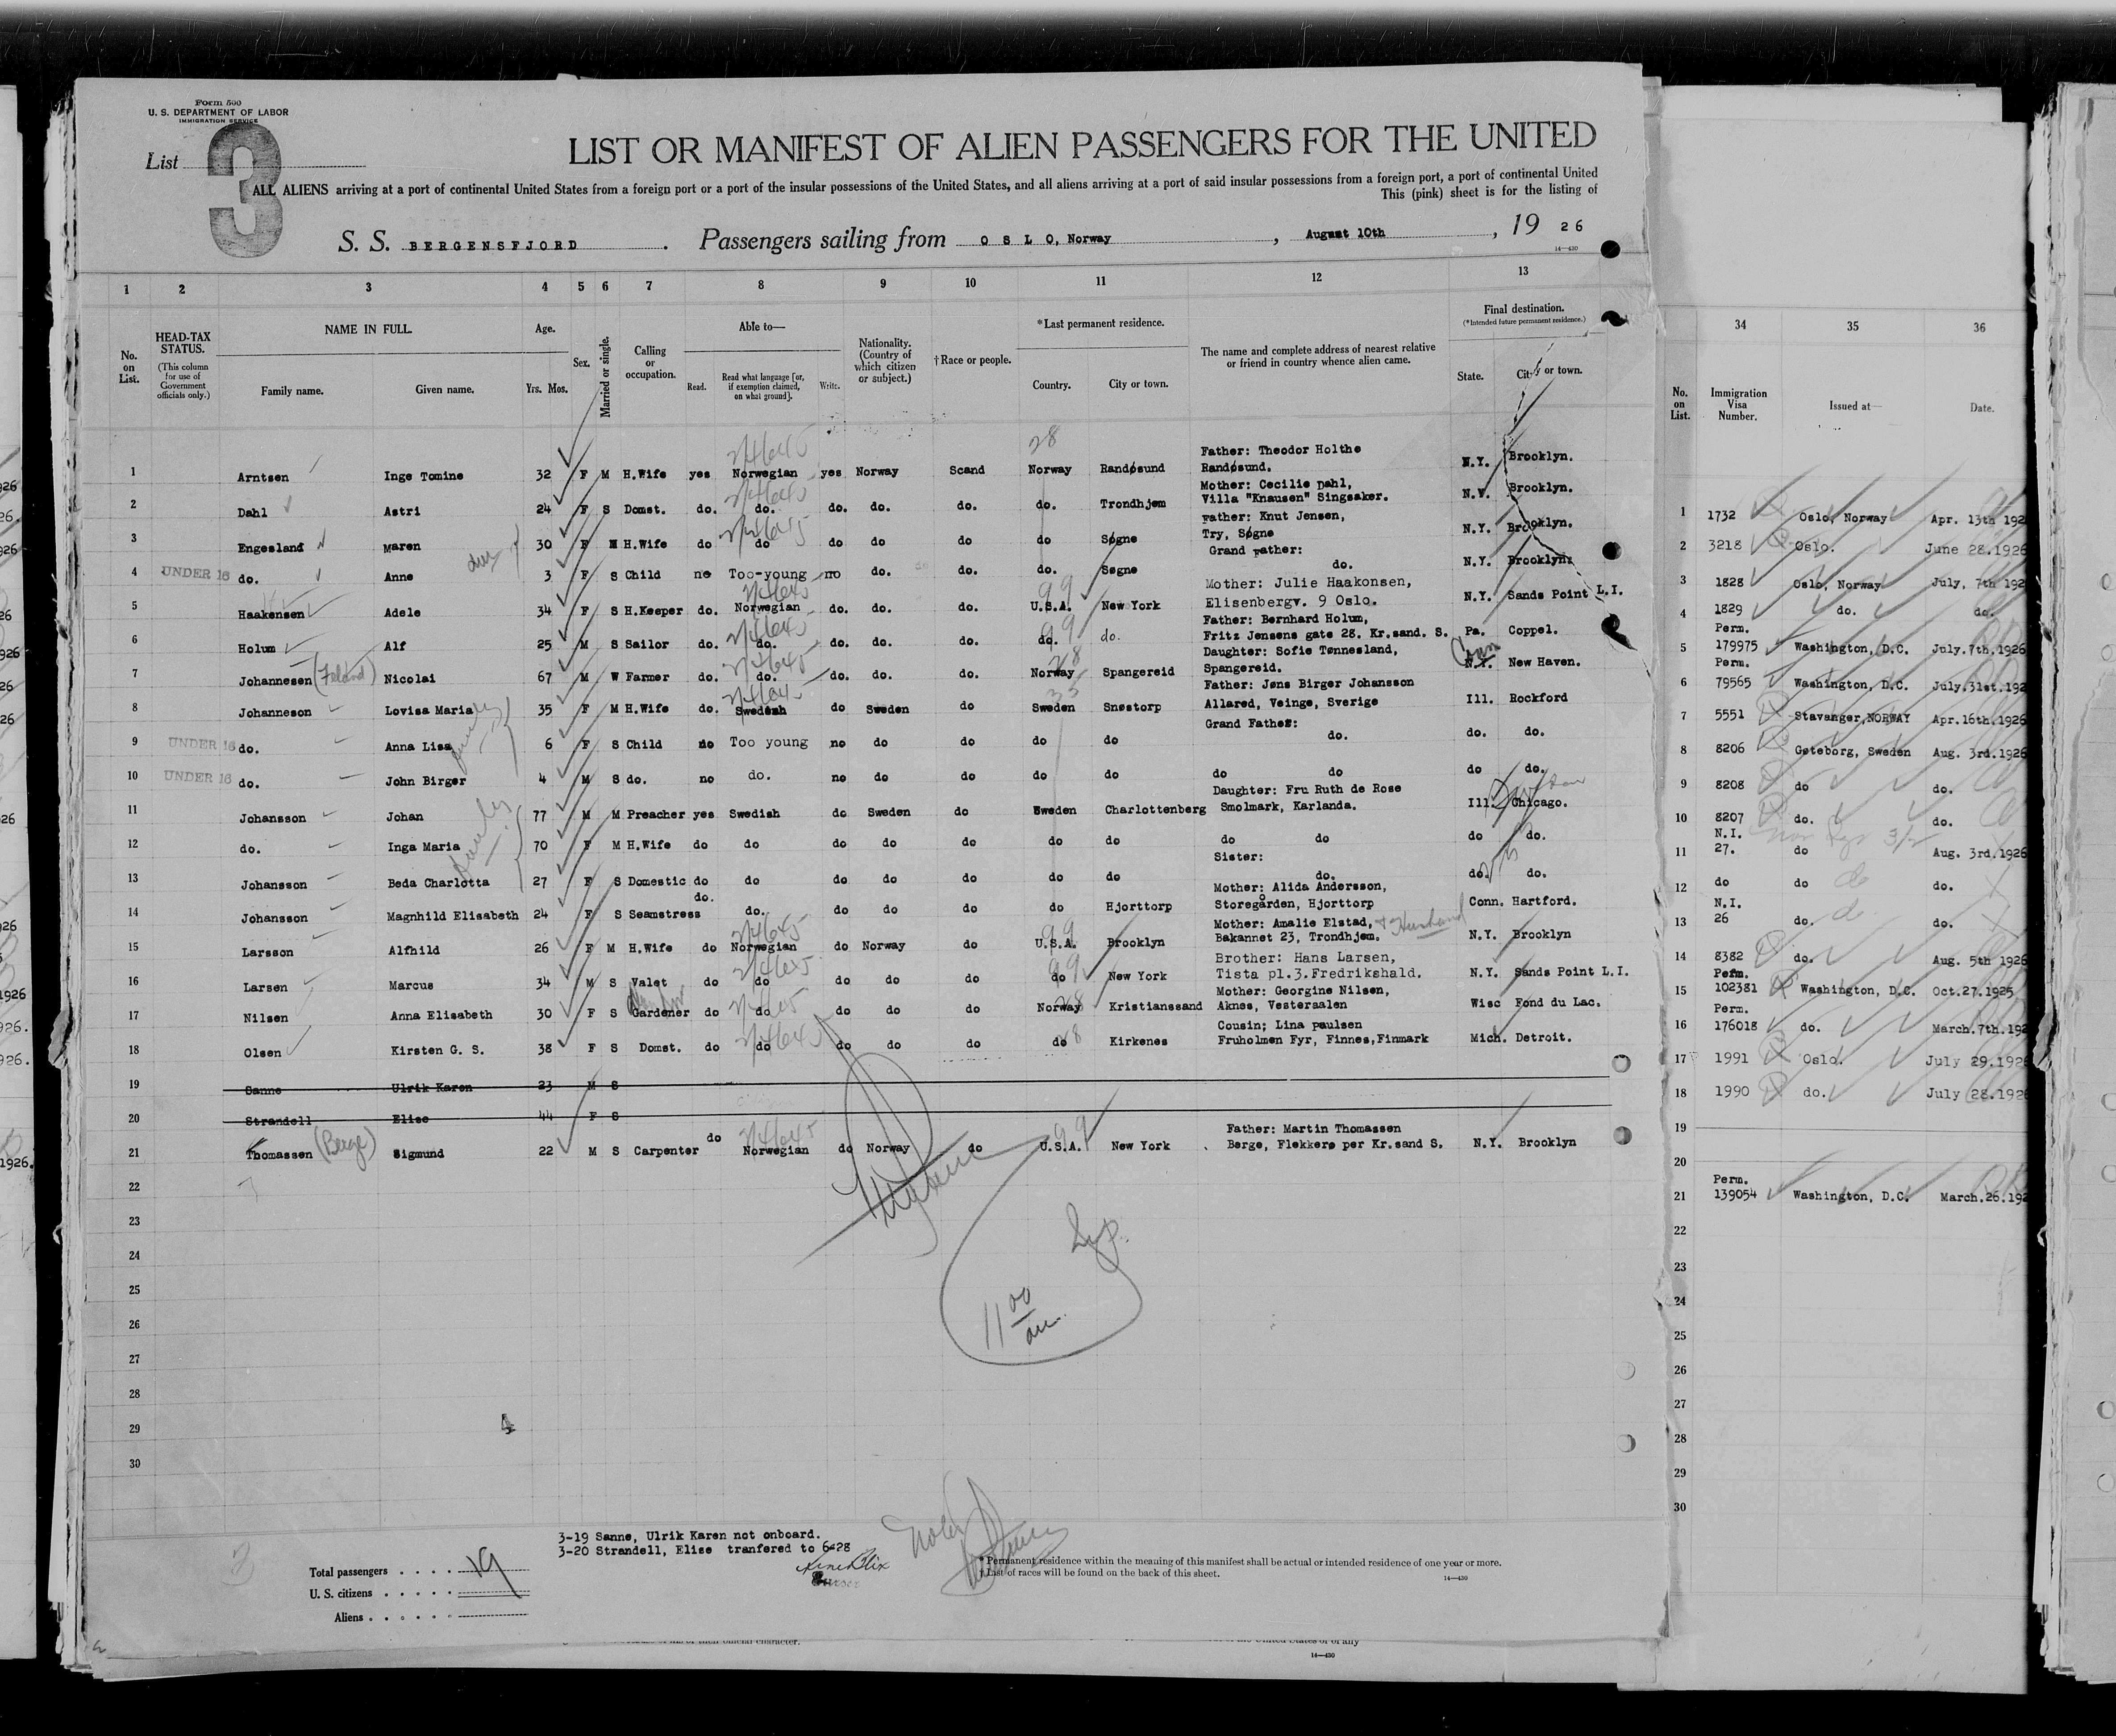 Form 500
U. S. DEPARTMENT OF LABOR
IMMIGRATION SERVICE
List 3
LIST OR MANIFEST OF ALIEN PASSENGERS FOR THE UNITED
ALL ALIENS arriving at a port of continental United States from a foreign port or a port of the insular possessions of the United States, and all aliens arriving at a port of said insular possessions from a foreign port, a port of continental United
This (pink) sheet is for the listing of
S. S. BERGENSFJORD . Passengers sailing from O S L O, Norway , August 10th , 19 26
14—430
1 2 3 4 5 6 7 8 9 10 11 12 13
No. on List.
HEAD-TAX STATUS.
(This column for use of Government officials only.)
NAME IN FULL.
Family name. Given name.
Age.
Yrs. Mos.
Sex.
Married or single.
Calling or occupation.
Able to—
Read. Read what language [or, if exemption claimed, on what ground]. Write.
Nationality. (Country of which citizen or subject.)
†Race or people.
*Last permanent residence.
Country. City or town.
The name and complete address of nearest relative or friend in country whence alien came.
Final destination.
(*Intended future permanent residence.)
State. City or town.
28
Father: Theodor Holthe
1 Arntsen Inge Tomine 32 F M H.Wife yes Norwegian yes Norway Scand Norway Randøsund Randøsund. N.Y. Brooklyn.
Mother: Cecilie Dahl,
2 Dahl Astri 24 F S Domst. do. do. do. do. do. do. Trondhjem Villa "Knausen" Singsaker. N.Y. Brooklyn.
Father: Knut Jensen,
3 Engesland Maren 30 F M H.Wife do do do do do do Søgne Try, Søgne N.Y. Brooklyn.
Grand Father:
4 UNDER 16 do. Anne 3 F S Child no Too-young no do. do. do. Søgne do. N.Y. Brooklyn.
99
Mother: Julie Haakonsen,
5 Haakensen Adele 34 F S H.Keeper do. Norwegian do. do. do. U.S.A. New York Elisenbergv. 9 Oslo. N.Y. Sands Point L.I.
99
Father: Bernhard Holum,
6 Holum Alf 25 M S Sailor do. do. do. do. do. do. do. Fritz Jensens gate 28. Kr.sand. S. Pa. Coppel.
28
Daughter: Sofie Tønnesland,
Conn
7 Johannesen (Feland) Nicolai 67 M W Farmer do. do. do. do. do. Norway Spangereid Spangereid. N.Y. New Haven.
35
Father: Jøns Birger Johansson
8 Johanneson Lovisa Maria 35 F M H.Wife do. Swedish do Sweden do Sweden Snøstorp Allared, Veinge, Sverige Ill. Rockford
Grand Father:
9 UNDER 16 do. Anna Lisa 6 F S Child no Too young no do do do do do. do. do.
10 UNDER 16 do. John Birger 4 M S do. no do. no do do do do do do do do.
Daughter: Fru Ruth de Rose
11 Johansson Johan 77 M M Preacher yes Swedish do Sweden do Sweden Charlottenberg Smolmark, Karlanda. Ill. Chicago.
12 do. Inga Maria 70 F M H.Wife do do do do do do do do do do do.
Sister:
13 Johansson Beda Charlotta 27 F S Domestic do do do do do do do do. do. do.
Mother: Alida Andersson,
14 Johansson Magnhild Elisabeth 24 F S Seamstress do. do. do do do do Hjorttorp Storegården, Hjorttorp Conn. Hartford.
99
Mother: Amalie Elstad, + Husband
15 Larsson Alfhild 26 F M H.Wife do Norwegian do Norway do U.S.A. Brooklyn Bakannet 23, Trondhjem. N.Y. Brooklyn
99
Brother: Hans Larsen,
16 Larsen Marcus 34 M S Valet do do do do do do New York Tista pl.3.Fredrikshald. N.Y. Sands Point L.I.
Mother: Georgine Nilsen,
17 Nilsen Anna Elisabeth 30 F S Gardener do do do do do Norway Kristianssand Aknes, Vesteraalen Wisc Fond du Lac.
Cousin; Lina paulsen
18 Olsen Kirsten G. S. 38 F S Domst. do do do do do do Kirkenes Fruholmen Fyr, Finnes,Finmark Mich. Detroit.
19 Sanne Ulrik Karen 23 M S
20 Strandell Elise 44 F S
99
Father: Martin Thomassen
21 Thomassen (Berge) Sigmund 22 M S Carpenter do Norwegian do Norway do U.S.A. New York Berge, Flekkerø per Kr.sand S. N.Y. Brooklyn
22
23
24
25
26
27
28
29
30
11 00 am
3-19 Sanne, Ulrik Karen not onboard.
3-20 Strandell, Elise tranfered to 6-28
Total passengers . . . . 19
U. S. citizens . . . . .
Aliens . . . . . .
* Permanent residence within the meaning of this manifest shall be actual or intended residence of one year or more.
† List of races will be found on the back of this sheet.
14—430
14—430
34 35 36
No. on List.
Immigration Visa Number.
Issued at—
Date.
1 1732 Oslo, Norway Apr. 13th 192
2 3218 Oslo. June 28.1926
3 1828 Oslo, Norway July, 7th 192
4 1829 do. do.
Perm.
5 179975 Washington, D.C. July.7th.1926
Perm.
6 79565 Washington, D.C. July.31st.192
7 5551 Stavanger,NORWAY Apr.16th.1926
8 8206 Gøteborg, Sweden Aug. 3rd.1926
9 8208 do do.
10 8207 do. do.
N.I.
11 27. do Aug. 3rd.1926
12 do do do.
N.I.
13 26 do. do.
14 8382 do. Aug. 5th 1926
Perm.
15 102381 Washington, D.C. Oct.27.1925
Perm.
16 176018 do. March.7th.192
17 1991 Oslo. July 29.1926
18 1990 do. July 28.1926
19
20
Perm.
21 139054 Washington, D.C. March.26.192
22
23
24
25
26
27
28
29
30